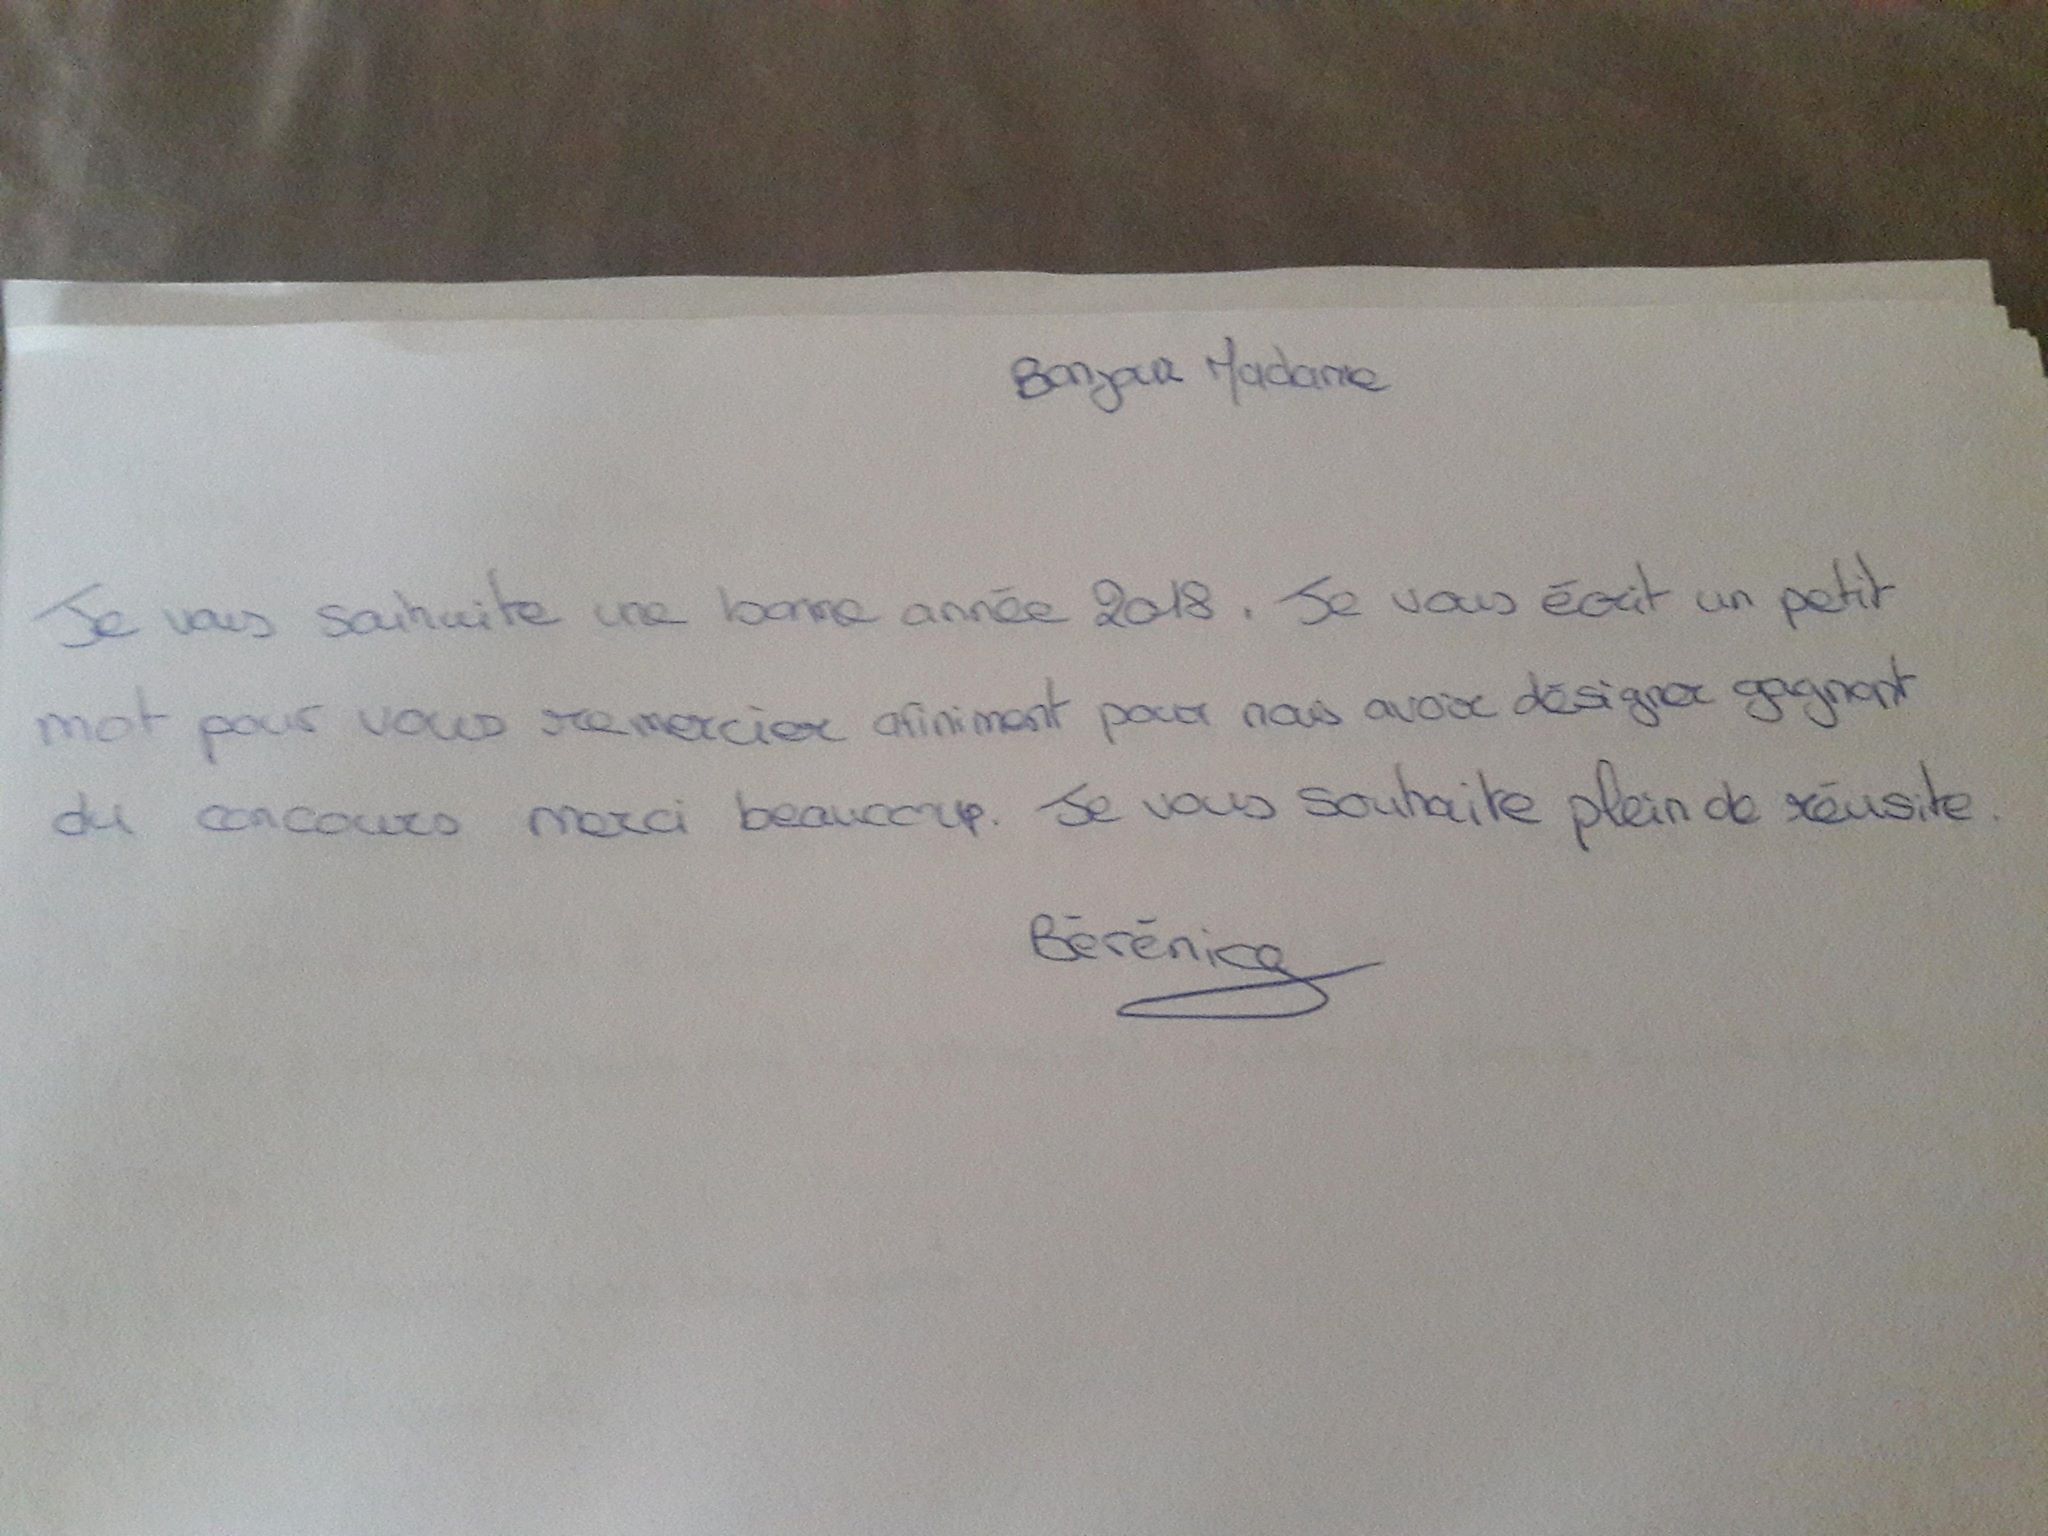 Bonjour Madame
Je vous souhaite une bonne année 2018. Je vous écrit un petit
mot pour vous remercier afiniment pour nous avoir désigner gagnant
du concours merci beaucoup. Je vous souhaite plein de réusite.
Bérénice